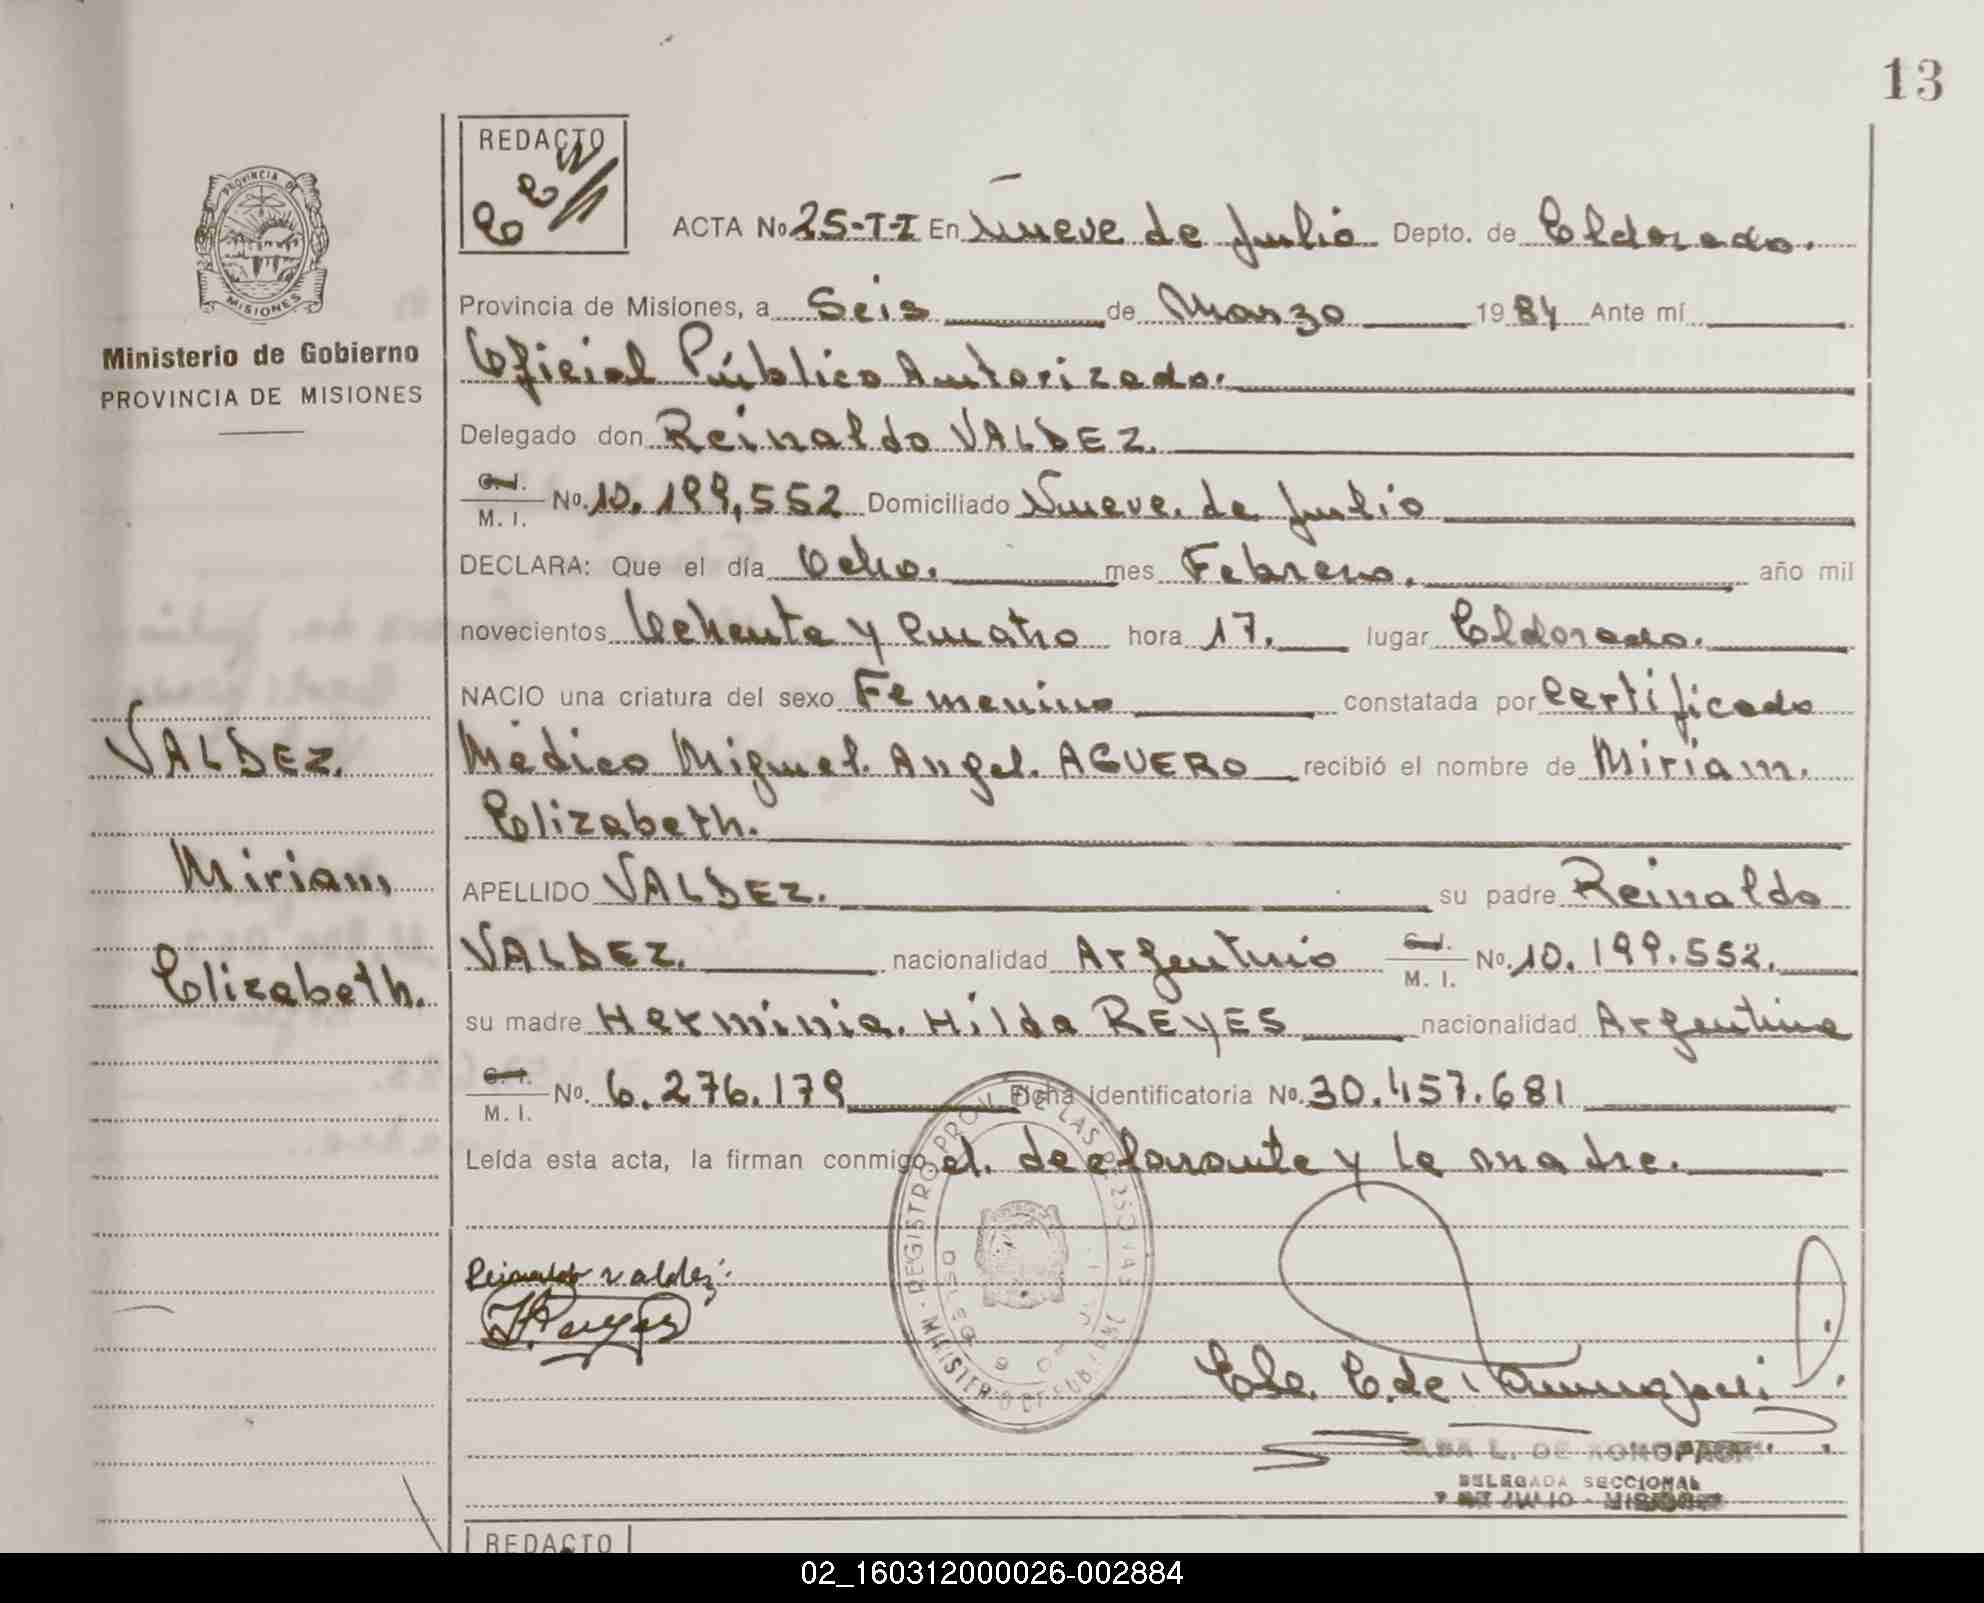 13
REDACTO
ACTA No 25-T-I En Nueve de Julio Depto. de Eldorado.
PROVINCIA DE
MISIONES
Provincia de Misiones, a Seis de Marzo 1984 Ante mí
Ministerio de Gobierno
PROVINCIA DE MISIONES
Oficial Público Autorizado.
Delegado don Reinaldo VALDEZ.
C.I. M. I. No. 10.199,552 Domiciliado Nueve. de Julio
DECLARA: Que el día Ocho. mes Febrero. año mil
novecientos Ochenta y Cuatro hora 17. lugar Eldorado.
NACIO una criatura del sexo Femenino constatada por Certificado
VALDEZ.
Médico Miguel. Angel. AGUERO recibió el nombre de Miriam.
Elizabeth.
Miriam,
APELLIDO VALDEZ. su padre Reinaldo
Elizabeth.
VALDEZ. nacionalidad Argentino C.I. M. I. No. 10.199.552.
su madre Herminia. Hilda REYES nacionalidad Argentina
C.I. M. I. No. 6.276.179 Ficha identificatoria No. 30.457.681
Leída esta acta, la firman conmigo el. declarante y la madre.
Reinaldo Valdez
HReyes
DE KONOPACKI
DELEGADA SECCIONAL
9 DE JULIO - MISIONES
REDACTO
02_160312000026-002884